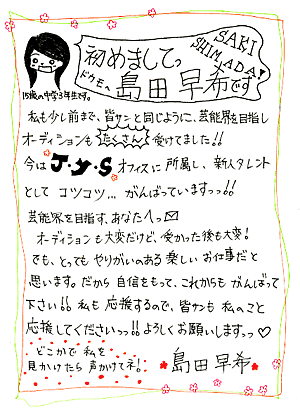 初めましてっ
SAKI
SHIMADA!
ドウモヘ
島田早希です
15歳の中学3年生です。
私も少し前まで、皆サンと同じように、芸能界を目指し
オーディションもたくさん受けてました!!
今はJ・Y・Sオフィスに所属し、新人タレント
として コツコツ… がんばっていますっっ!!
芸能界を目指す、あなたへっ✉
オーディションも大変だけど、受かった後も大変!
でも、とっても やりがいのある楽しい お仕事だと
思います。だから 自信をもって、これからも がんばって
下さい!! 私も 応援するので、皆サンも 私のこと
応援してくださいっっ!! よろしくお願いしますっっ♡
どこかで 私を
見かけたら 声かけてネ!
島田早希